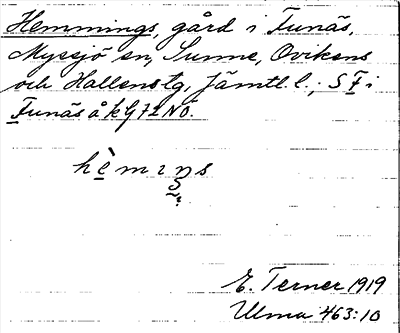 Hemmings, gård i Funäs,
Myssjö sn, Sunne, Ovikens
och Hallens tg, Jämtl. l.; S F i
Funäs å kG 72 NO.
E. Terner 1919
Ulma 463:10